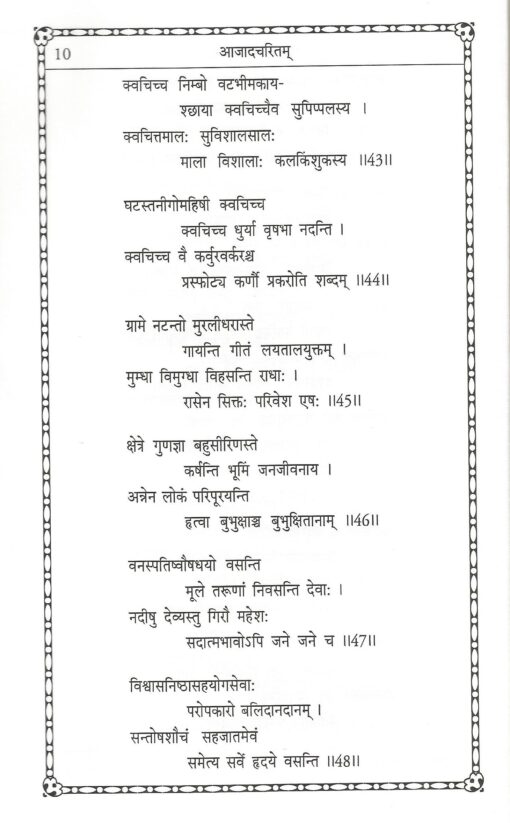 10
आजादचरितम्
क्वचिच्च निम्बो वटभीमकाय-
श्छाया क्वचिच्चैव सुपिप्पलस्य ।
क्वचित्तमालः सुविशालसालः
माला विशालाः कलकिंशुकस्य ॥43॥
घटस्तनीगोमहिषी क्वचिच्च
क्वचिच्च धुर्या वृषभा नदन्ति ।
क्वचिच्च वै कर्वुरवर्करश्च
प्रस्फोट्य कर्णौ प्रकरोति शब्दम् ॥44॥
ग्रामे नटन्तो मुरलीधरास्ते
गायन्ति गीतं लयतालयुक्तम् ।
मुग्धा विमुग्धा विहसन्ति राधाः ।
रासेन सिक्तः परिवेश एषः ॥45॥
क्षेत्रे गुणज्ञा बहुसीरिणस्ते
कर्षन्ति भूमिं जनजीवनाय ।
अन्नेन लोकं परिपूरयन्ति
हृत्वा बुभुक्षाञ्च बुभुक्षितानाम् ॥46॥
वनस्पतिष्वौषधयो वसन्ति
मूले तरूणां निवसन्ति देवाः ।
नदीषु देव्यस्तु गिरौ महेशः
सदात्मभावोऽपि जने जने च ॥47॥
विश्वासनिष्ठासहयोगसेवाः
परोपकारो बलिदानदानम् ।
सन्तोषशौचं सहजातमेवं
समेत्य सर्वे हृदये वसन्ति ॥48॥